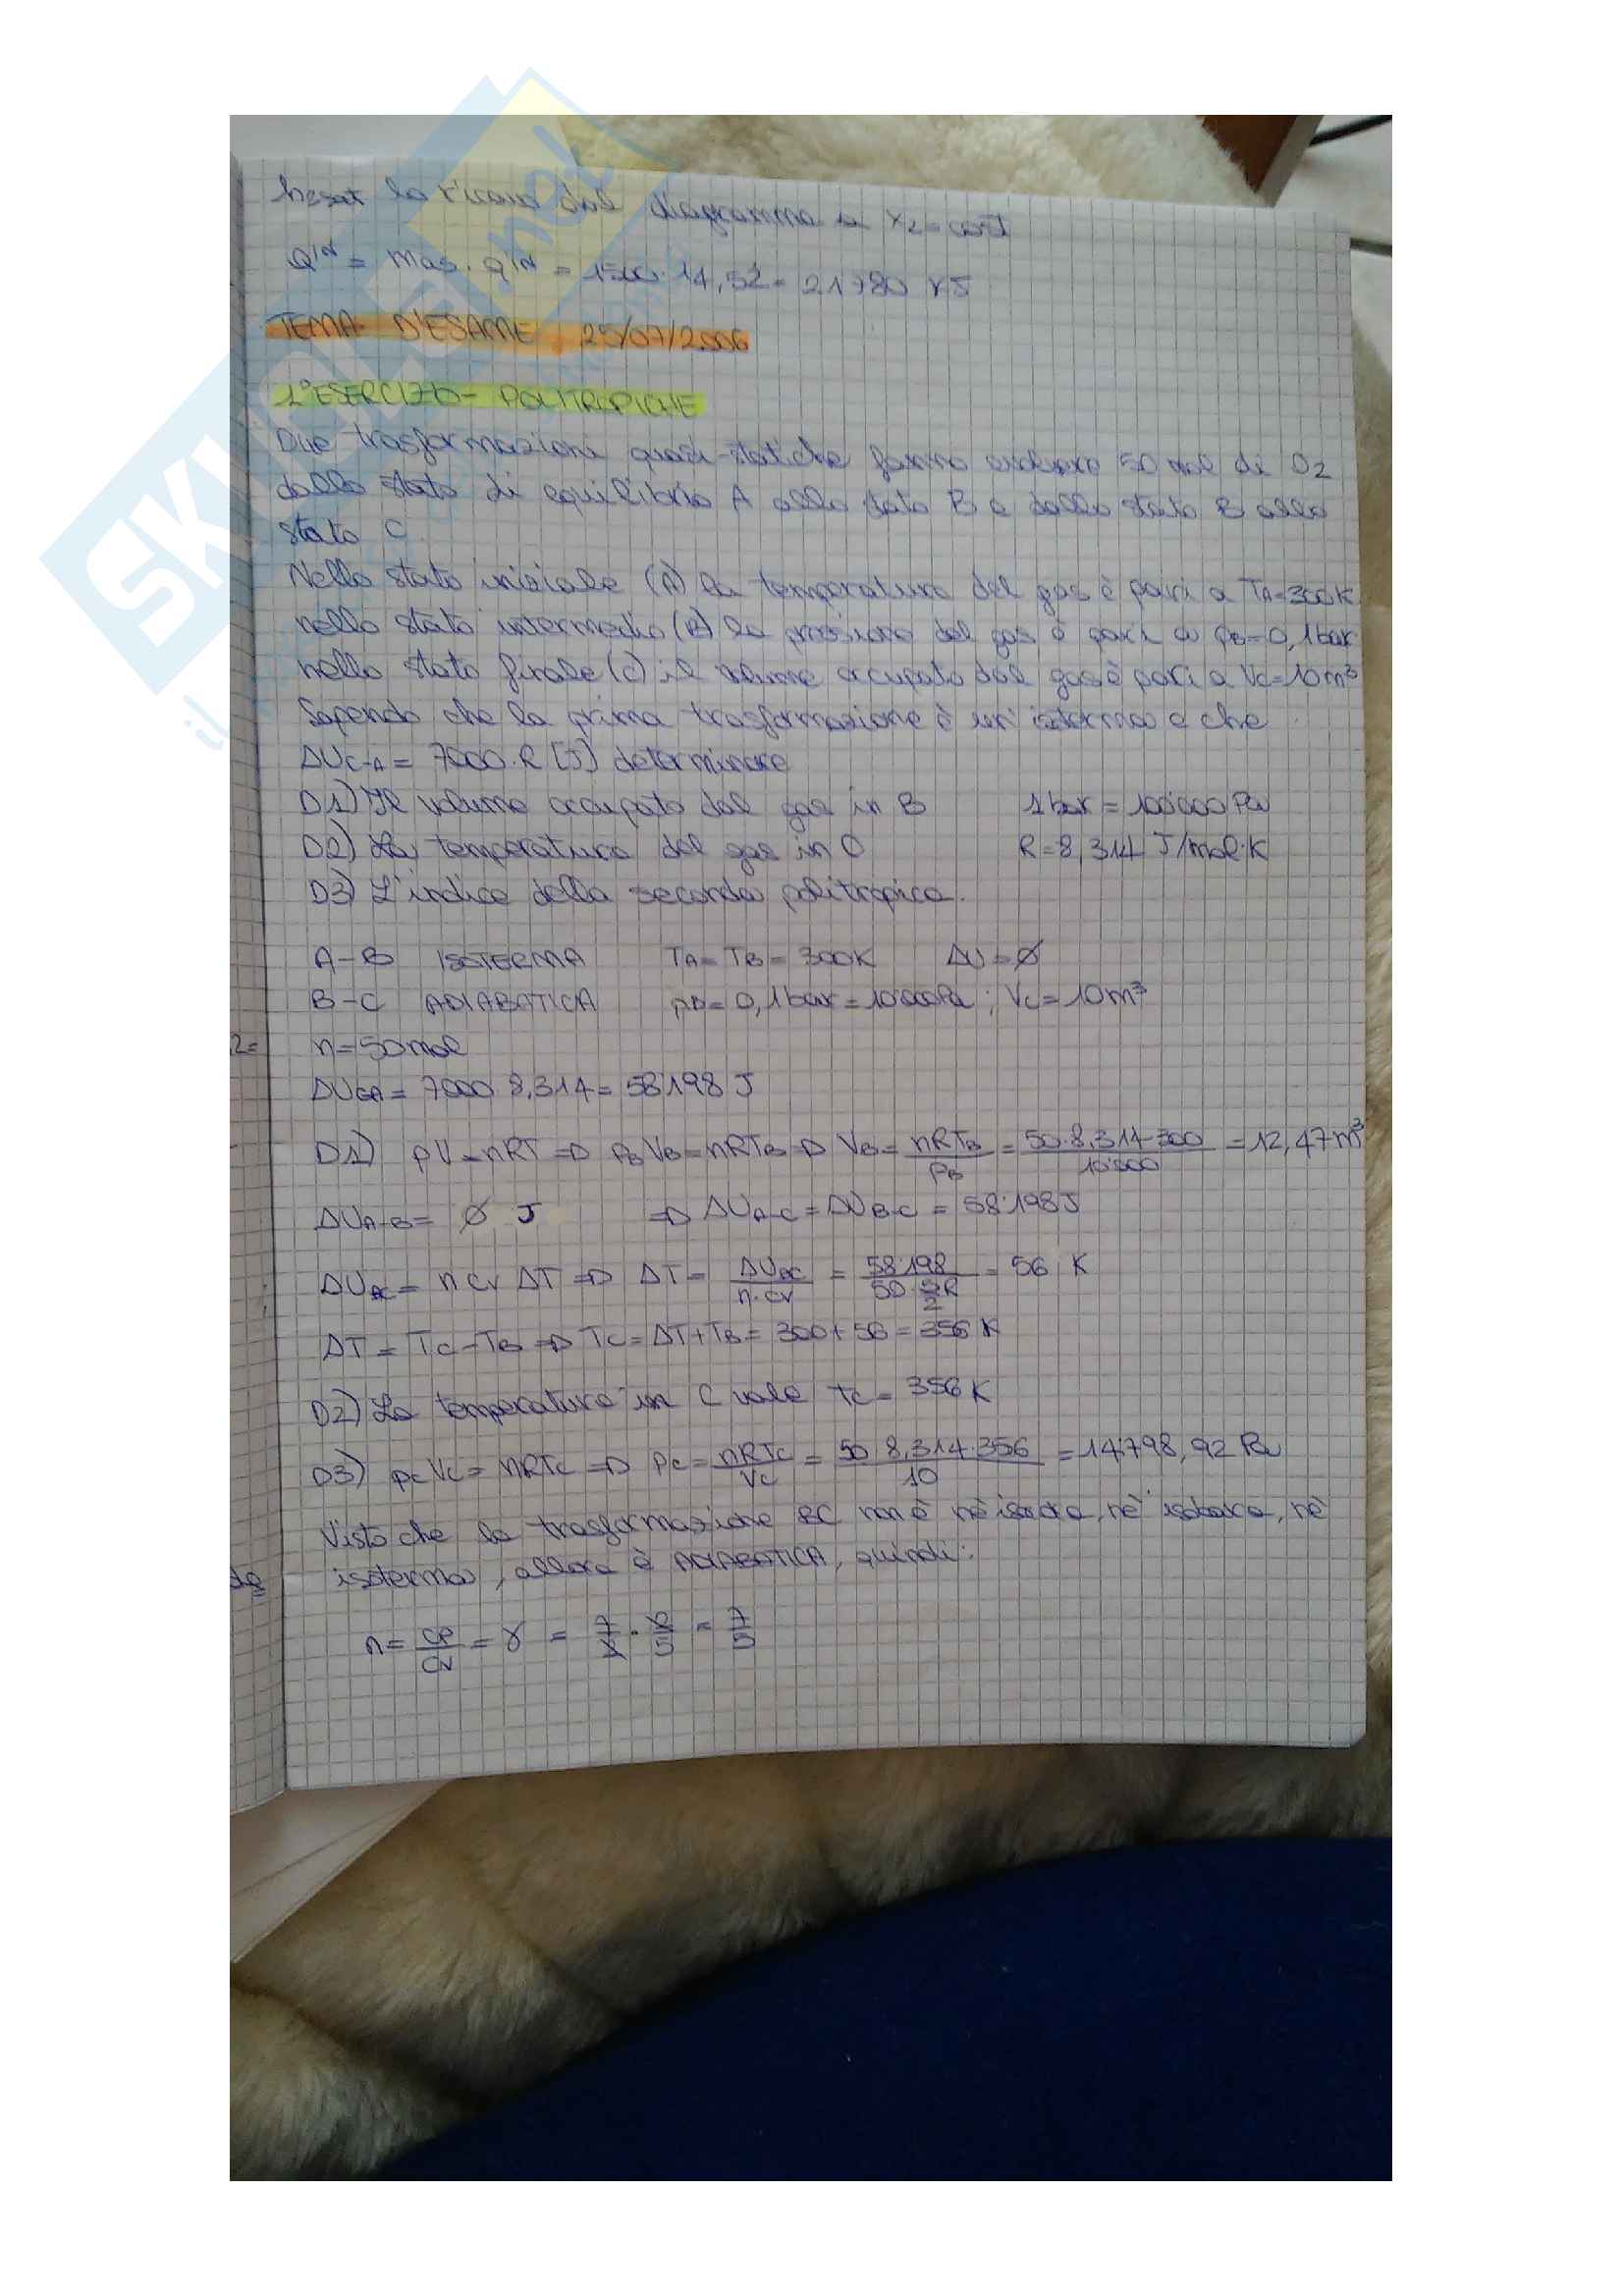 h2sat la ricavo dal diagramma a x2=cost
Q^IN = mas · q^IN = 1500 · 14,52 = 21780 KJ
TEMA D'ESAME 25/07/2006
1° ESERCIZIO - POLITROPICHE
Due trasformazioni quasi-statiche fanno evolvere 50 mol di O2
dallo stato di equilibrio A allo stato B e dallo stato B allo
stato C.
Nello stato iniziale (A) la temperatura del gas è pari a TA=300K
nello stato intermedio (B) la pressione del gas è pari a pB=0,1bar
nello stato finale (C) il volume occupato dal gas è pari a Vc=10m³
Sapendo che la prima trasformazione è un'isoterma e che
ΔUc-A = 7000·R [J] determinare
D1) Il volume occupato dal gas in B 1bar = 100'000 Pa
D2) La temperatura del gas in C R=8,314 J/mol·K
D3) L'indice della seconda politropica.
A-B ISOTERMA TA=TB=300K ΔU=Ø
B-C ADIABATICA pB=0,1bar=10'000Pa; Vc=10m³
2=
n=50mol
ΔUCA = 7000·8,314 = 58'198 J
D1) pV=nRT => pBVB=nRTB => VB= nRTB/pB = 50·8,314·300/10'000 = 12,47m³
ΔUA-B = Ø J => ΔUA-C = ΔUB-C = 58'198J
ΔUBC = n cv ΔT => ΔT = ΔUBC/n·cv = 58'198/50·5/2R = 56 K
ΔT = Tc-TB => Tc=ΔT+TB = 300+56 = 356 K
D2) La temperatura in C vale tc = 356 K
D3) pcVc = nRTc => pc = nRTc/Vc = 50·8,314·356/10 = 14'798,92 Pa
Visto che la trasformazione BC non è nè isocora, nè isobara, nè
isoterma, allora è ADIABATICA, quindi:
n = cp/cv = γ = 7/2 · 2/5 = 7/5
SKUOLA.not